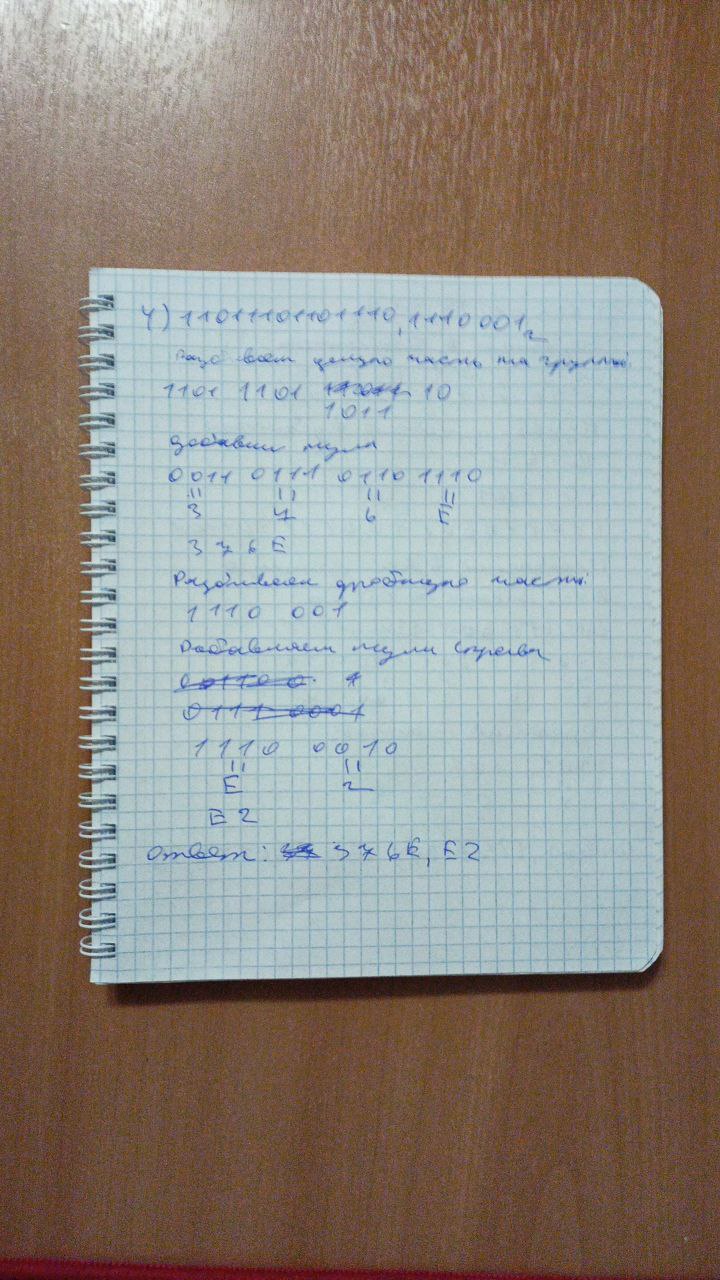 4) 11011101101110,1110001₂
Разобьем целую часть на группы
1101 1101 10
1011
добавим нули
0011 0111 0110 1110
" " " "
3 7 6 E
3 7 6 E
Разбиваем дробную часть
1110 001
Добавляем нули справа
001100
0111 0001
1110 0010
" "
E 2
E2
Ответ: 376E,E2